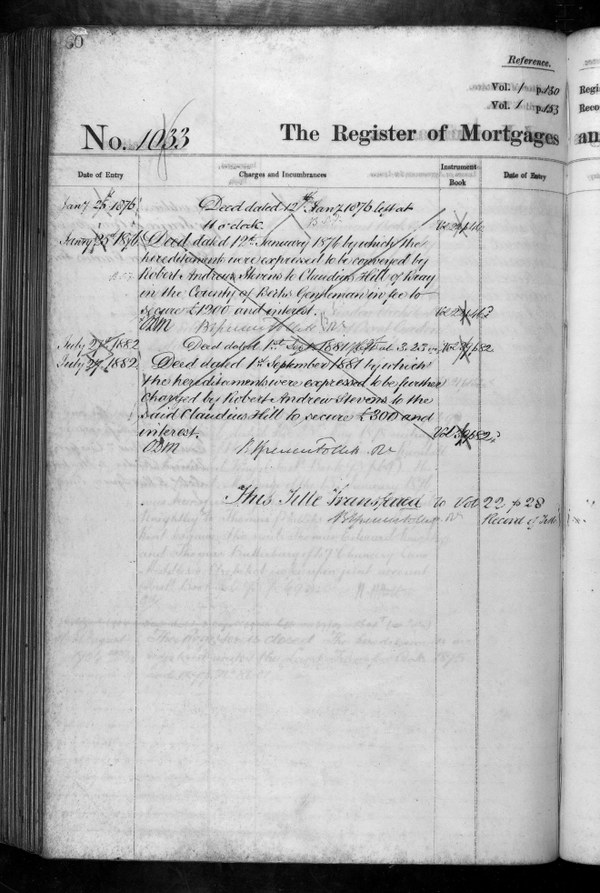 50
Reference.
Vol. 1 p. 150
Vol. 1 p. 153
No. 1033 The Register of Mortgages an
Regi
Reco
Date of Entry Charges and Incumbrances Instrument Book Date of Entry
Jany 25th 1876 Deed dated 12th Jany 1876 left at
11 o'clock.
Jany 25th 1876 Deed dated 12th January 1876 by which the
hereditaments were expressed to be conveyed by
Robert Andrew Stevens to Claudius Hill of Bray
in the County of Berks Gentleman in fee to
secure £1200 and interest.
July 27th 1882 Deed dated 1st Sept 1881 left at 3.23
July 27th 1882 Deed dated 1st September 1881 by which
the hereditaments were expressed to be further
charged by Robert Andrew Stevens to the
said Claudius Hill to secure £300 and
interest.
This Title Transferred to Vol 22 p 28
Record of Title